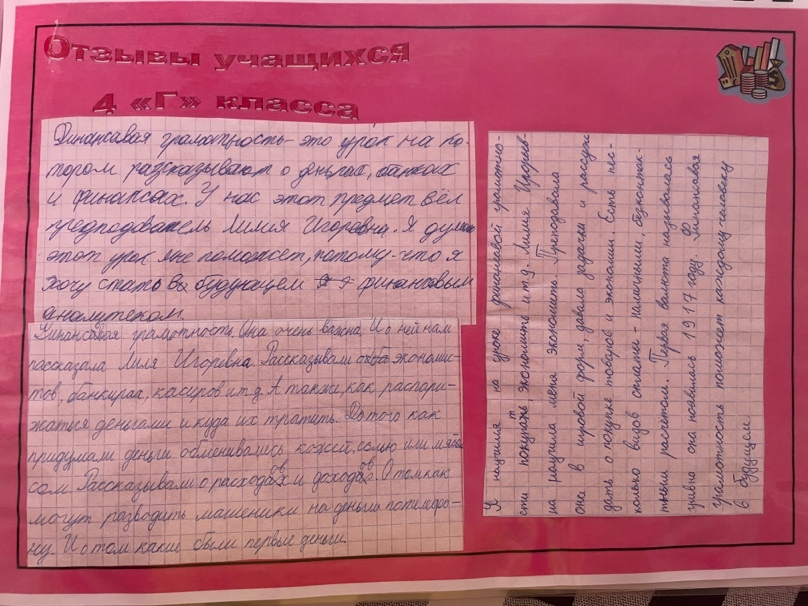 Отзывы учащихся
4 «Г» класса
Финансавая грамотность - это урок на ко-
тором разсказывают о деньгах, банках
и финансах. У нас этот предмет вёл
предподователь Лилия Игоревна. Я думаю
этот урок мне поможет, потому-что я
хочу стать в будующем финансовым
аналитеком.
Финансовая грамотность. Она очень важна. И о ней нам
рассказала Лиля Игоревна. Рассказывали об экономис-
тов, банкираа, касиров и т.д. А также, как распори-
жаться деньгами и куда их тратить. До того как
придумали деньги обменивались кожей, солью или мя
сом. Рассказывали о расходах и доходах. О том как
могут разводить машеники на деньги по телефо-
ну. И о том какие были первые деньги.
Я научился на уроке финансовой грамотно-
сти покупать, экономить и т.д. Лилия Игорев-
на научила меня экономить. Преподавала
она в игровой форме, давала задачи и
дать о покупке товаров и экономии. Есть нес-
колько видов оплаты - наличными, безконтак-
тным расчетом. Первая валюта называлась
она появилась 1917 году. Финансовая
грамотность поможет каждому человеку
в будущем.